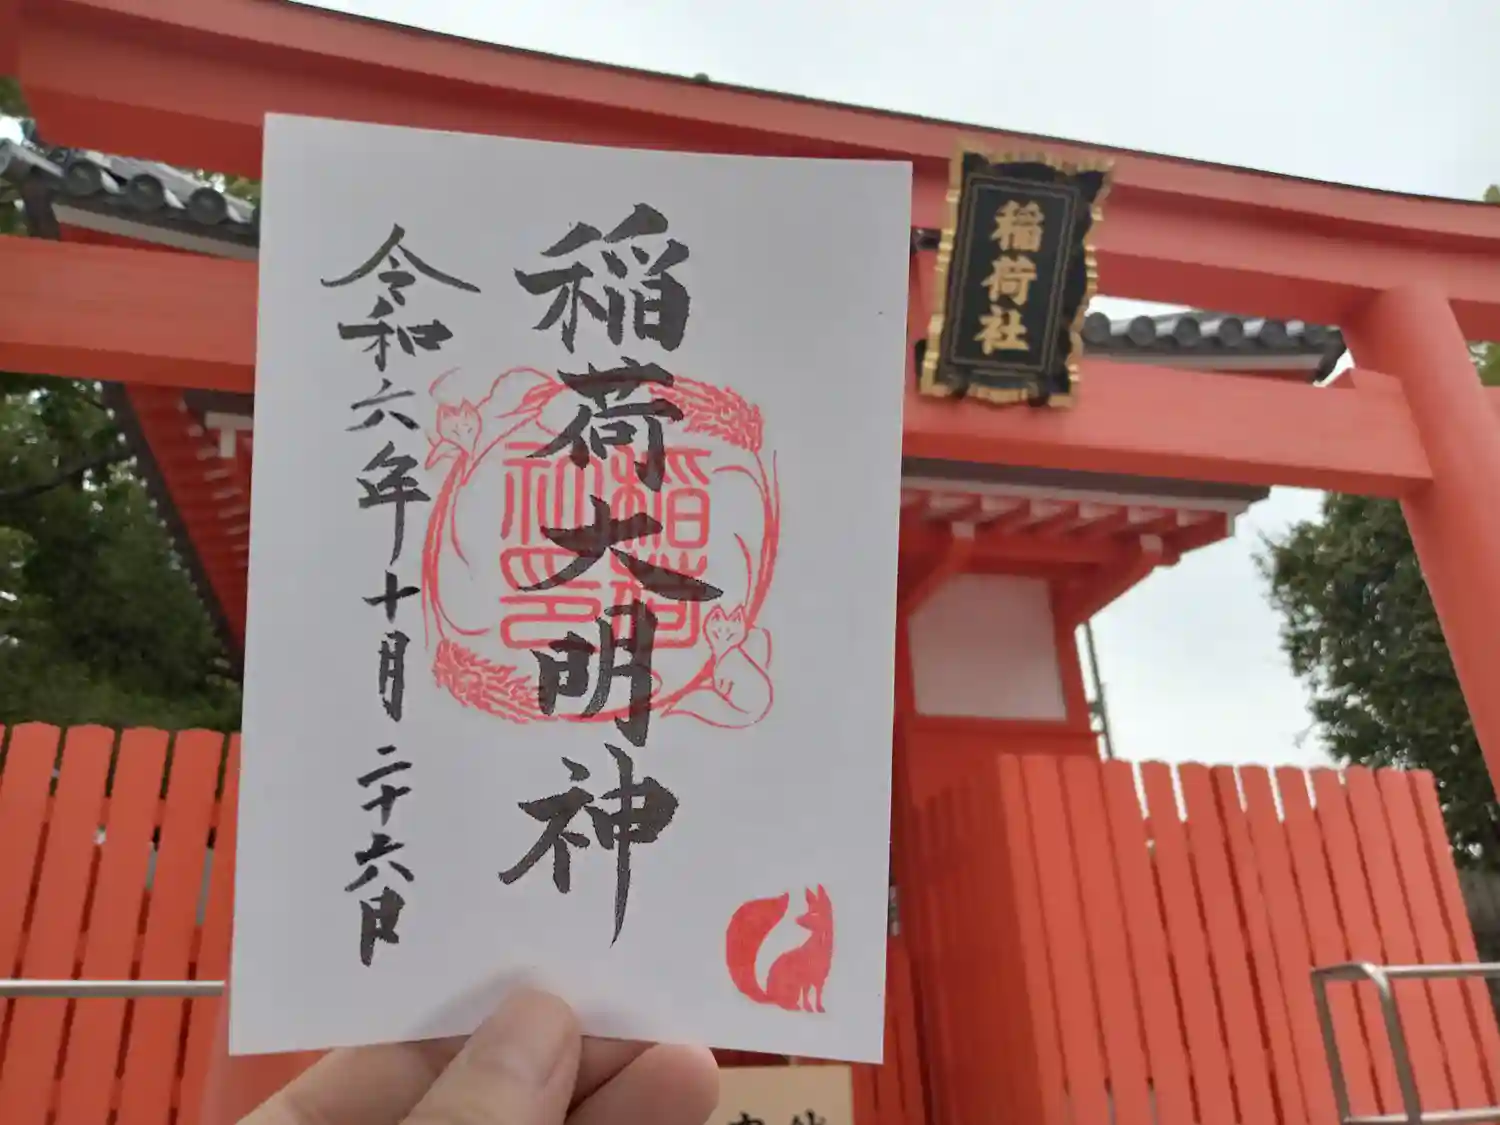 稲荷大明神
令和六年十月二十六日
稲荷社印
稲荷社